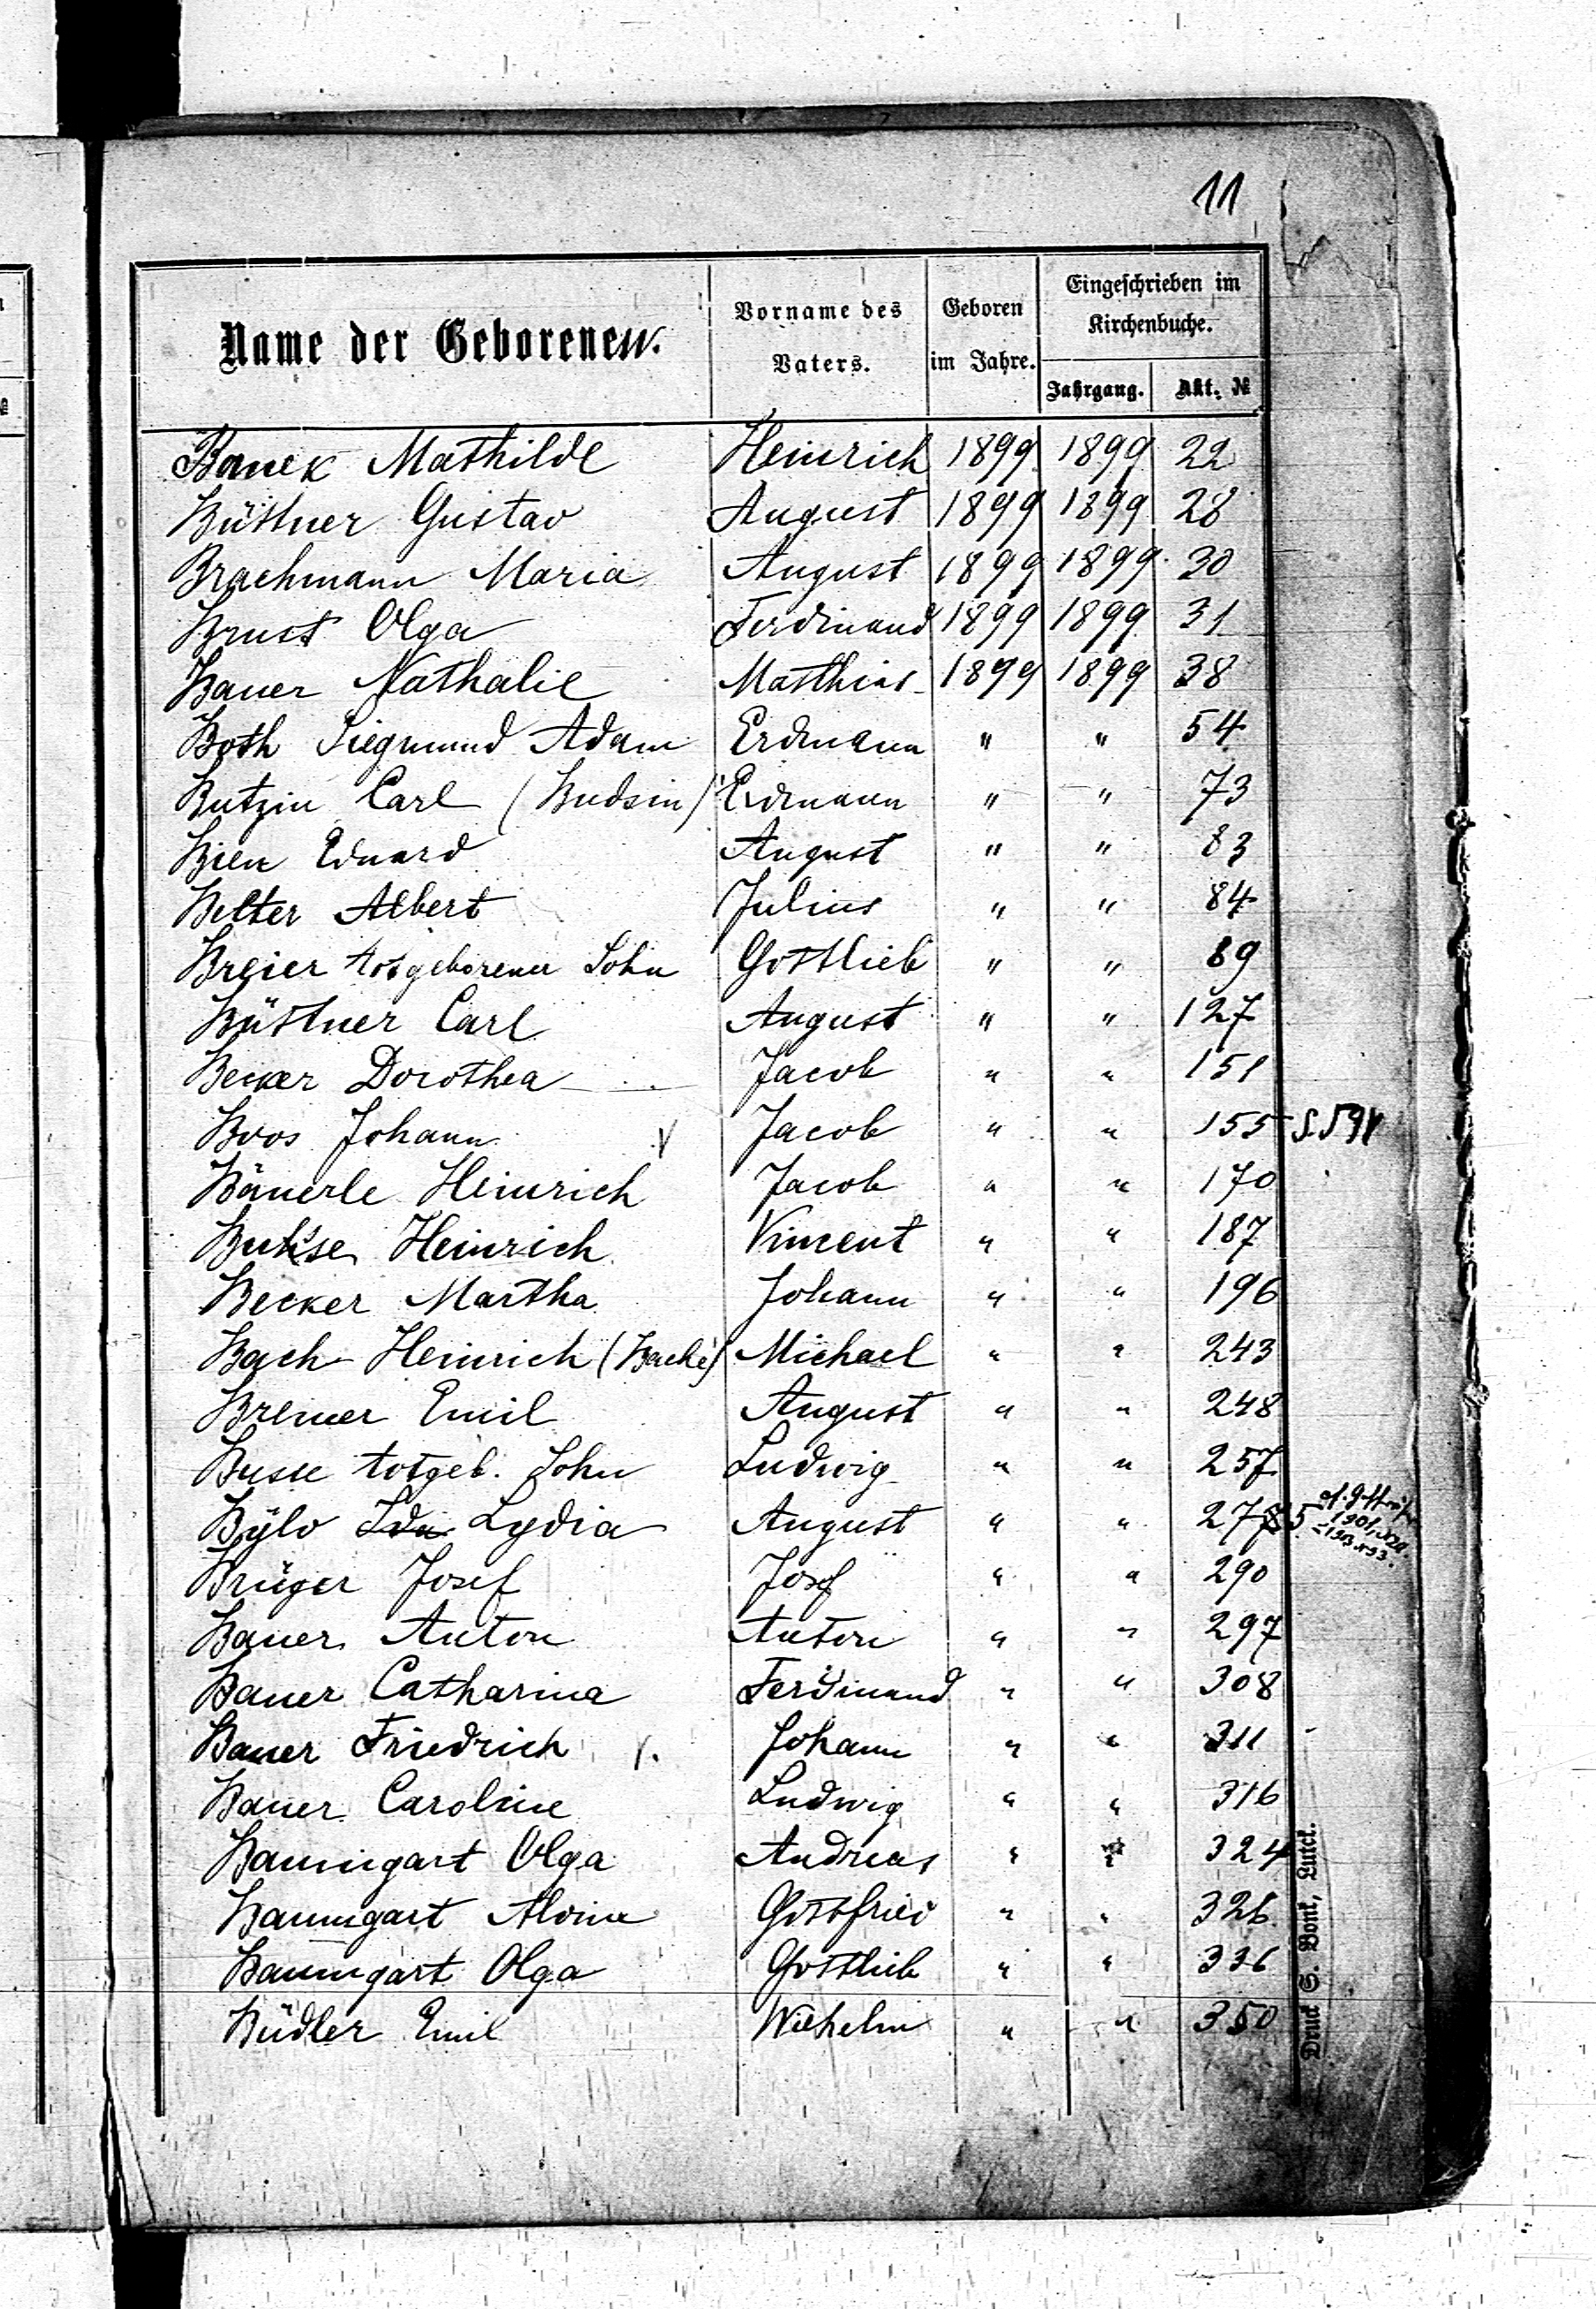 11
Name der Geborenen.
Vorname des Vaters.
Geboren im Jahre.
Eingeschrieben im Kirchenbuche.
Jahrgang. Akt. №
Banek Mathilde Heinrich 1899 1899 22
Büttner Gustav August 1899 1899 28
Brachmann Maria August 1899 1899 30
Brust Olga Ferdinand 1899 1899 31
Bauer Nathalie Matthias 1899 1899 38
Both Siegmund Adam Erdmann " " 54
Butzin Carl (Budsin) Erdmann " " 73
Bien Eduard August " " 83
Belter Albert Julius " " 84
Breier totgeborener Sohn Gottlieb " " 89
Büttner Carl August " " 127
Becker Dorothea Jacob " " 151
Boos Johann v Jacob " " 155
Bäuerle Heinrich Jacob " " 170
Heinrich Vincent " " 187
Becker Martha Johann " " 196
Bach Heinrich (Bache) Michael " " 243
Bremer Emil August " " 248
Busse totgeb. Sohn Ludwig " " 257
Bylo Ida Lydia August " " 2775
Krüger Josef Josef " " 290
Bauer Anton Anton " " 297
Bauer Catharina Ferdinand " " 308
Bauer Friedrich v. Johann " " 311
Bauer Caroline Ludwig " " 316
Baumgart Olga Andreas " " 324
Baumgart Alvine Gottfried " " 326
Baumgart Olga Gottlieb " " 336
Büdler Emil Wilhelm " " 350
Druck S. Bonk, Lutck.